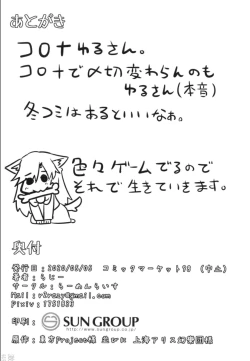 あとがき
コロナゆるさん。
コロナで〆切変わらんのも
ゆるさん(本音)
冬コミはあるといいなぁ。
色々ゲームでるので
それで生きていきます。
奥付
発行日：2020/05/05 コミックマーケット98 (中止)
著者：
サークル：らーめんらいす
Mail：
Pixiv：
印刷：SUN GROUP
http://www.sungroup.co.jp/
原作：東方Project様 並びに 上海アリス幻樂団様